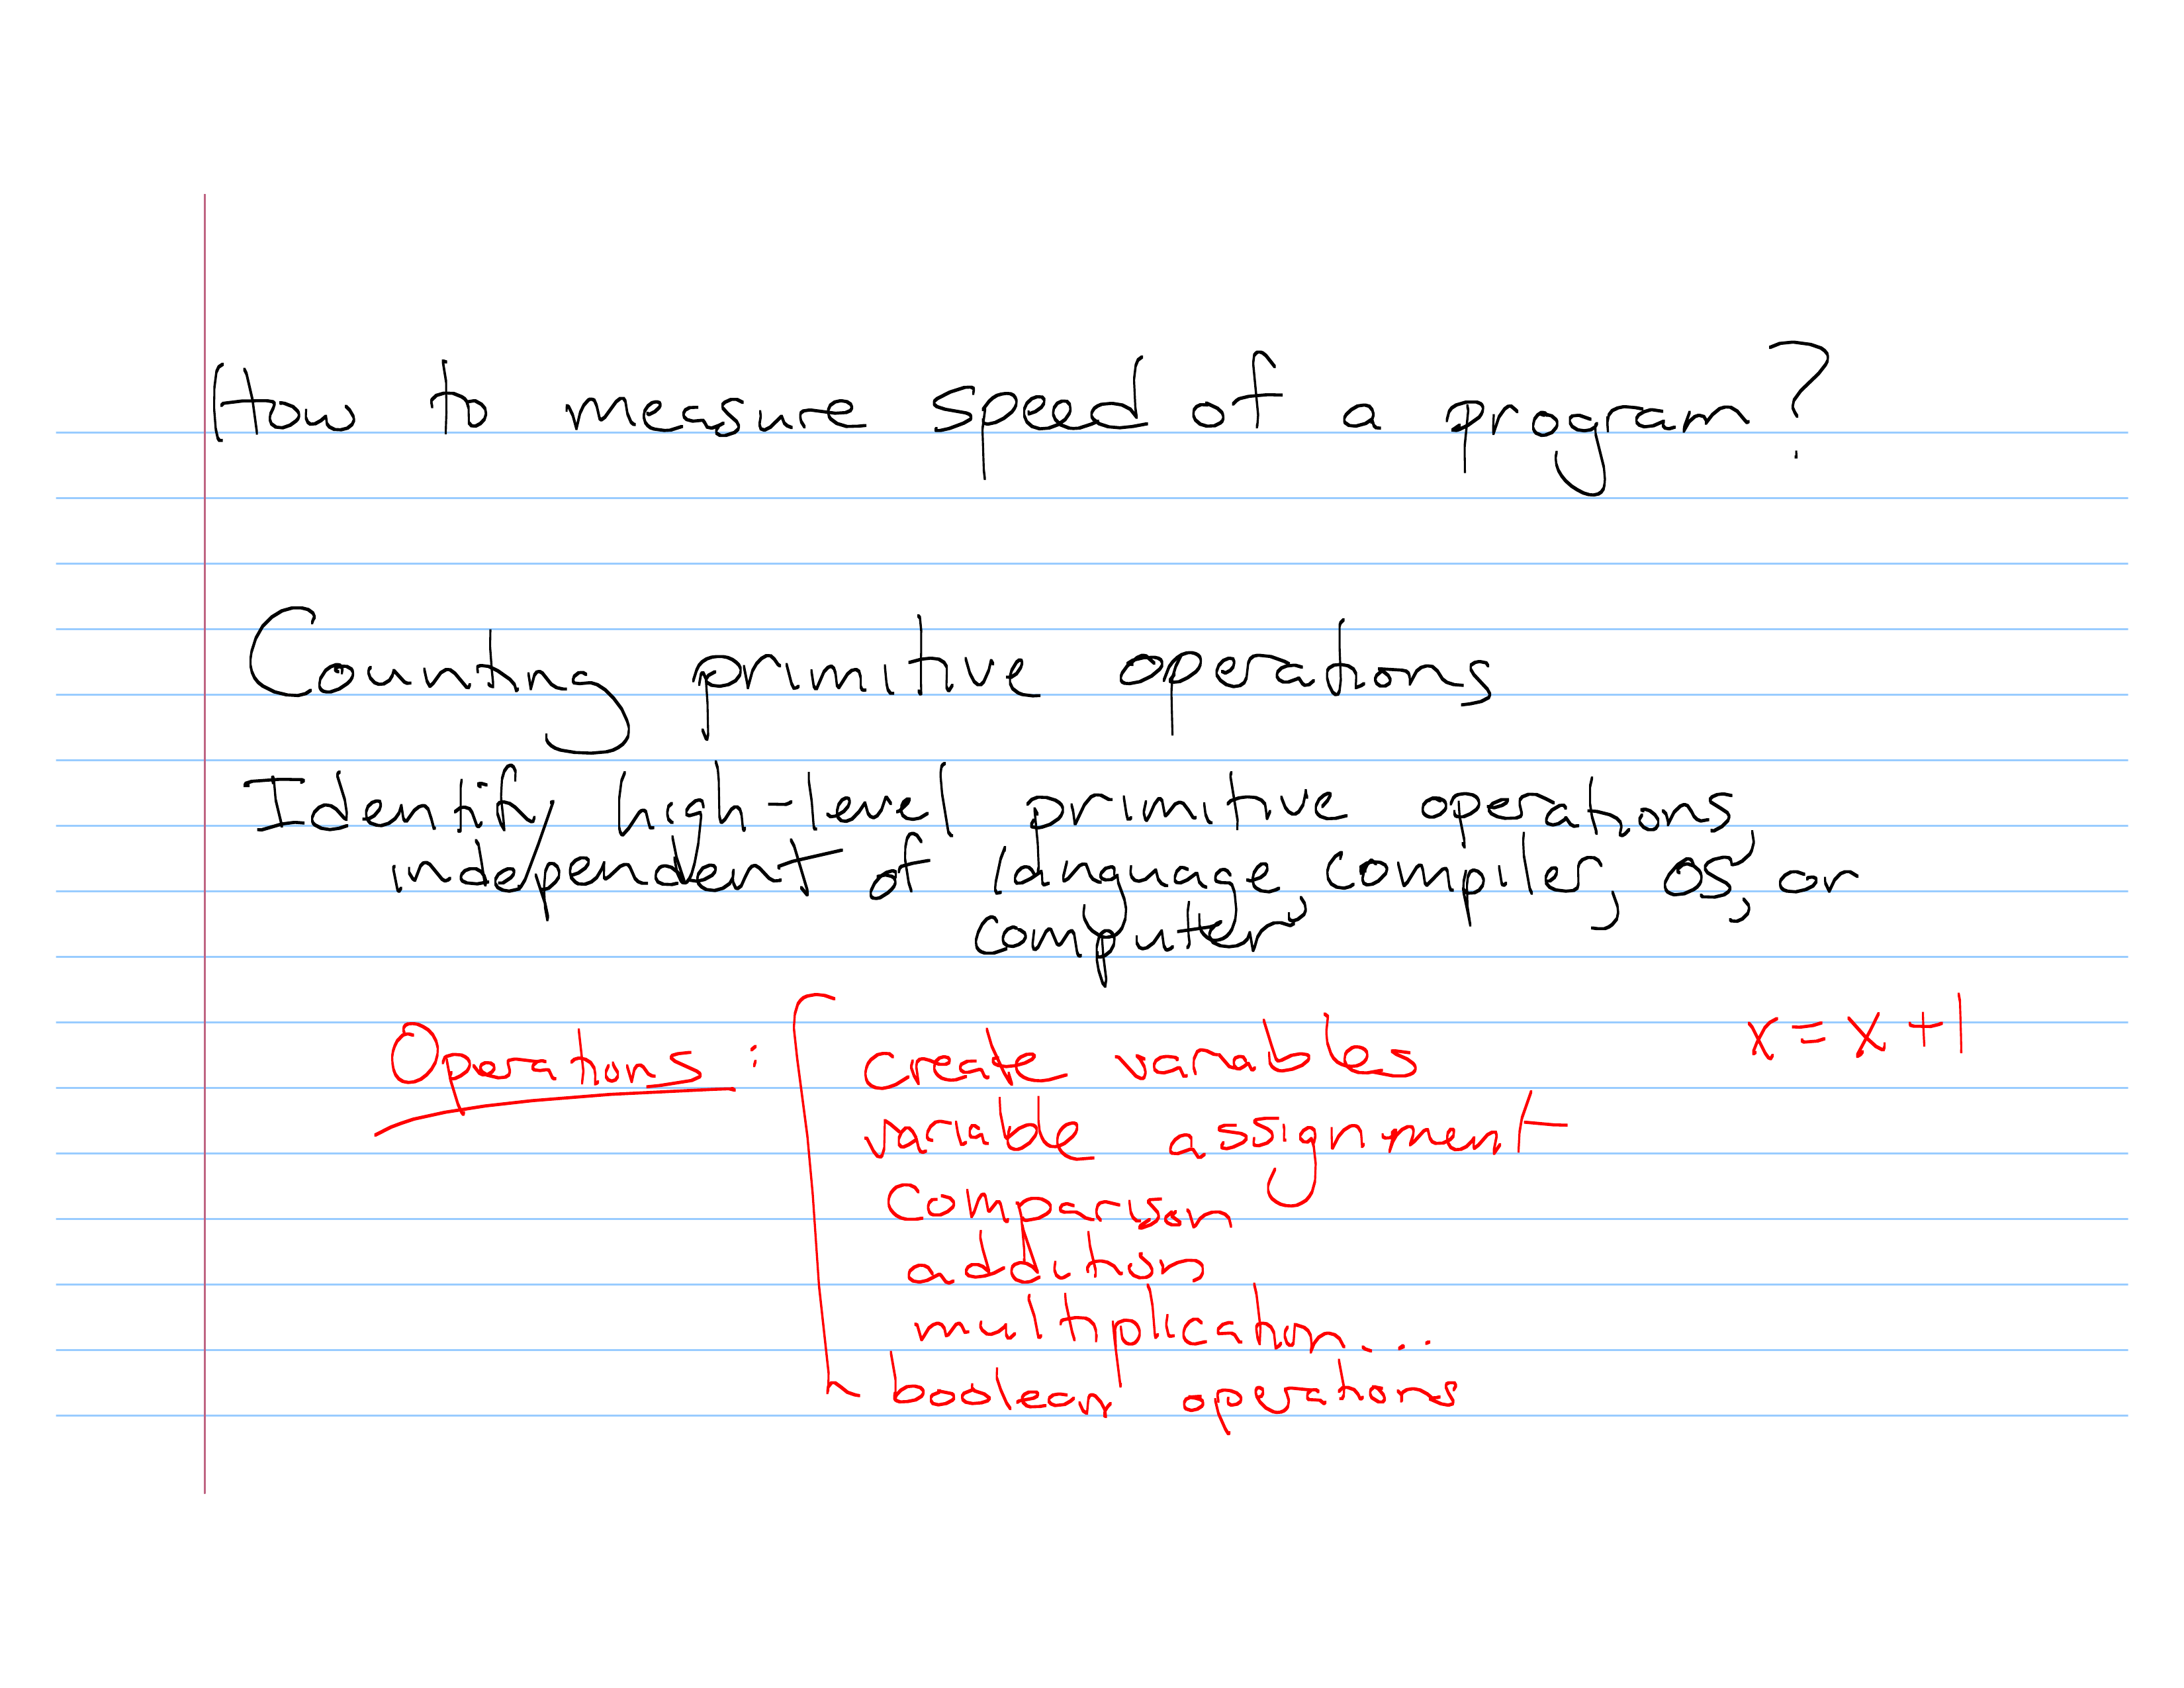 How to measure speed of a program?
Counting primitive operations
Identify high-level primitive operations,
independent of language, compiler, OS, or
computer
Operations: create variables x = x + 1
variable assignment
Comparison
addition
multiplication....
boolean operations